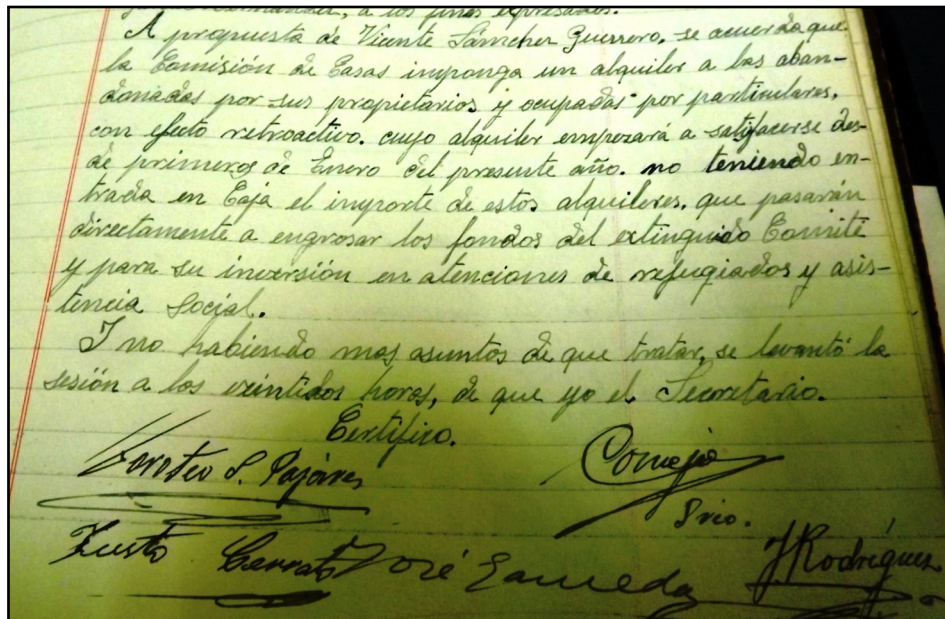 a los fines expresados.
A propuesta de Vicente Sánchez Guerrero, se acuerda que
la Comisión de Casas imponga un alquiler a las aban-
donadas por sus propietarios y ocupadas por particulares,
con efecto retroactivo, cuyo alquiler empezará a satisfacerse des-
de primeros de Enero del presente año, no teniendo en-
trada en Caja el importe de estos alquileres, que pasarán
directamente a engrosar los fondos del extinguido Comité
y para su inversión en atenciones de refugiados y asis-
tencia Social.
Y no habiendo mas asuntos de que tratar, se levantó la
sesión a las veintidos horas, de que yo el Secretario.
Certifico.
Doroteo S. Pajares Cornejo
Srio.
Justo José J Rodríguez